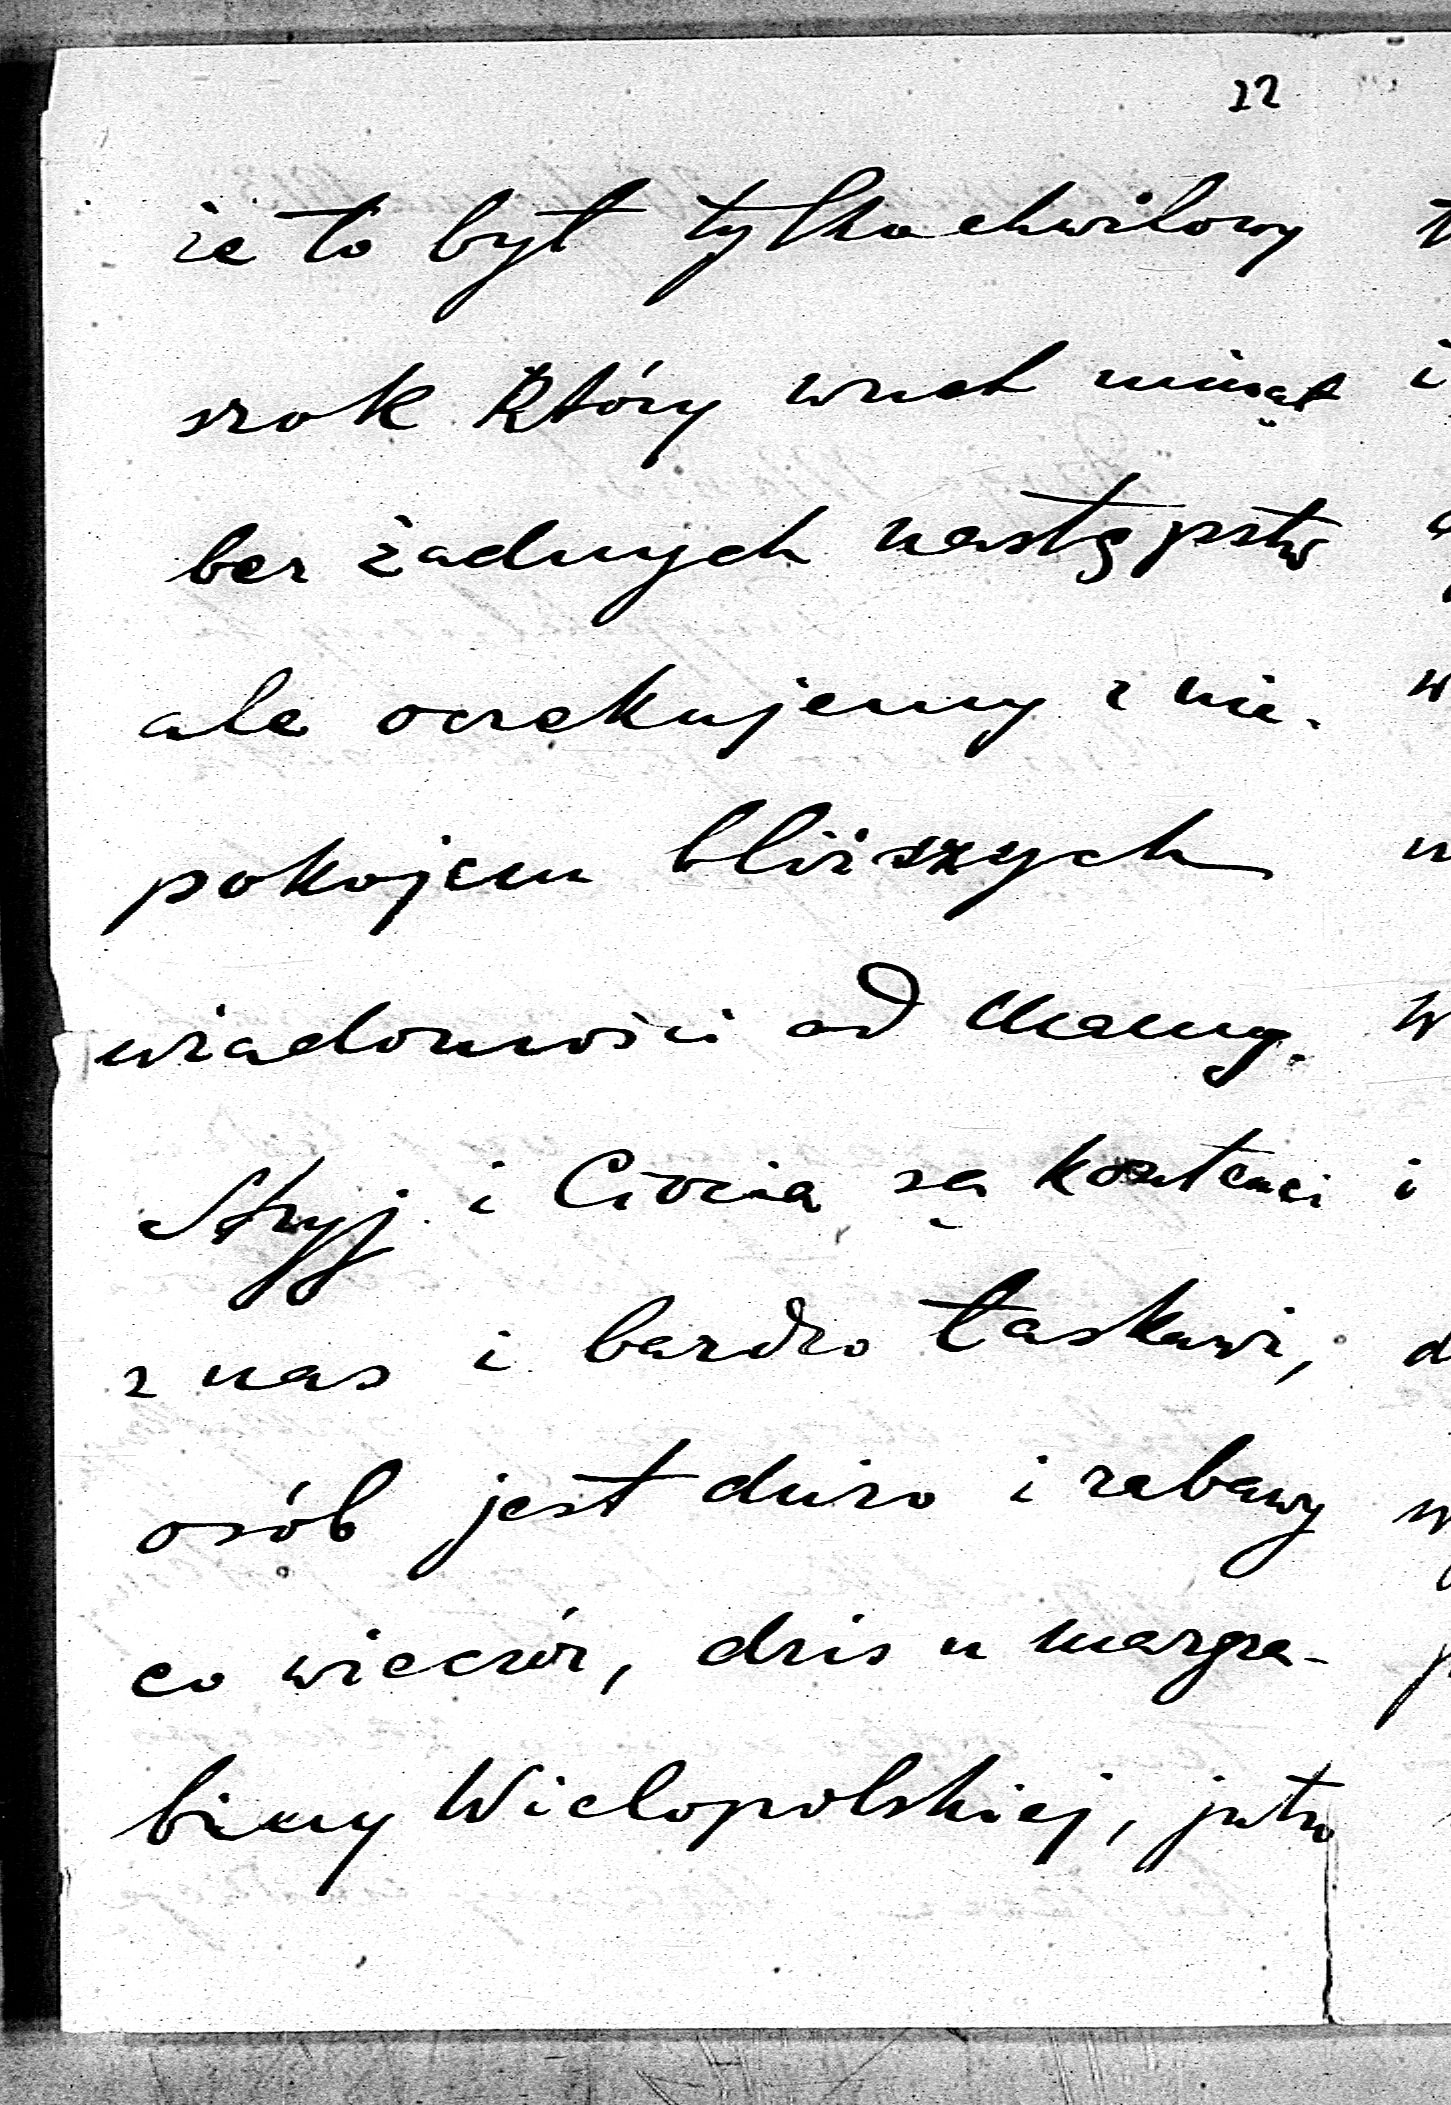 22
że to był tylko chwilowy
szok który wnet minął
bez żadnych następstw
ale oczekujemy z nie-
pokojem bliższych
wiadomości od Mamy.
Stryj i Ciocia są kontenci
z nas i bardzo łaskawi,
osób jest dużo i zabawy
co wieczór, dziś u margra-
biny Wielopolskiej, jutro